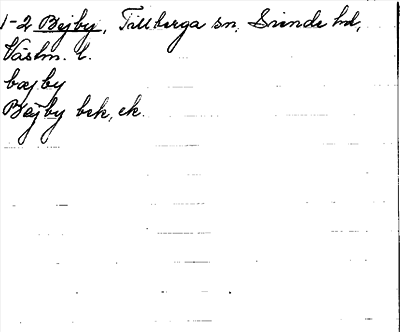 1-2 Bejby, Tillberga sn, Siende hd,
Västm. l.
bæjby
Bäjby bek, ek.